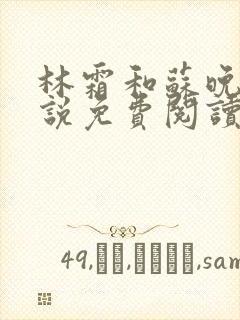 林霜和蘇晚
說免費閱讀
49,
,sam